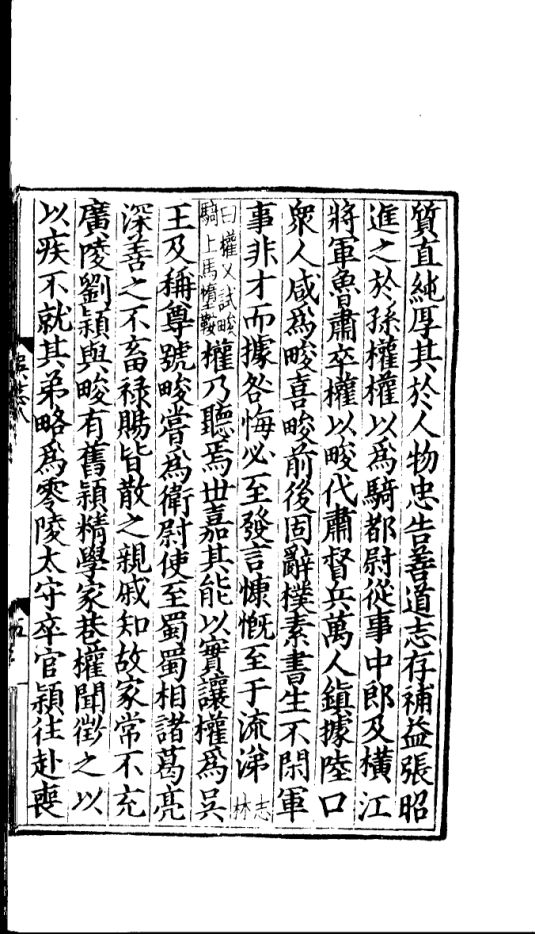 質直純厚其於人物忠告善道志存補益張昭
進之於孫權權以爲騎都尉從事中郎及橫江
將軍魯肅卒權以畯代肅督兵萬人鎭據陸口
衆人咸爲畯喜畯前後固辭樸素書生不閑軍
事非才而據咎悔必至發言慷慨至于流涕志林
曰權又試畯騎上馬墮鞍權乃聽焉世嘉其能以實讓權爲吳
王及稱尊號畯嘗爲衛尉使至蜀蜀相諸葛亮
深善之不畜禄賜皆散之親戚知故家常不充
廣陵劉穎與畯有舊穎精學家巷權聞徵之以
以疾不就其弟略爲零陵太守卒官穎往赴喪